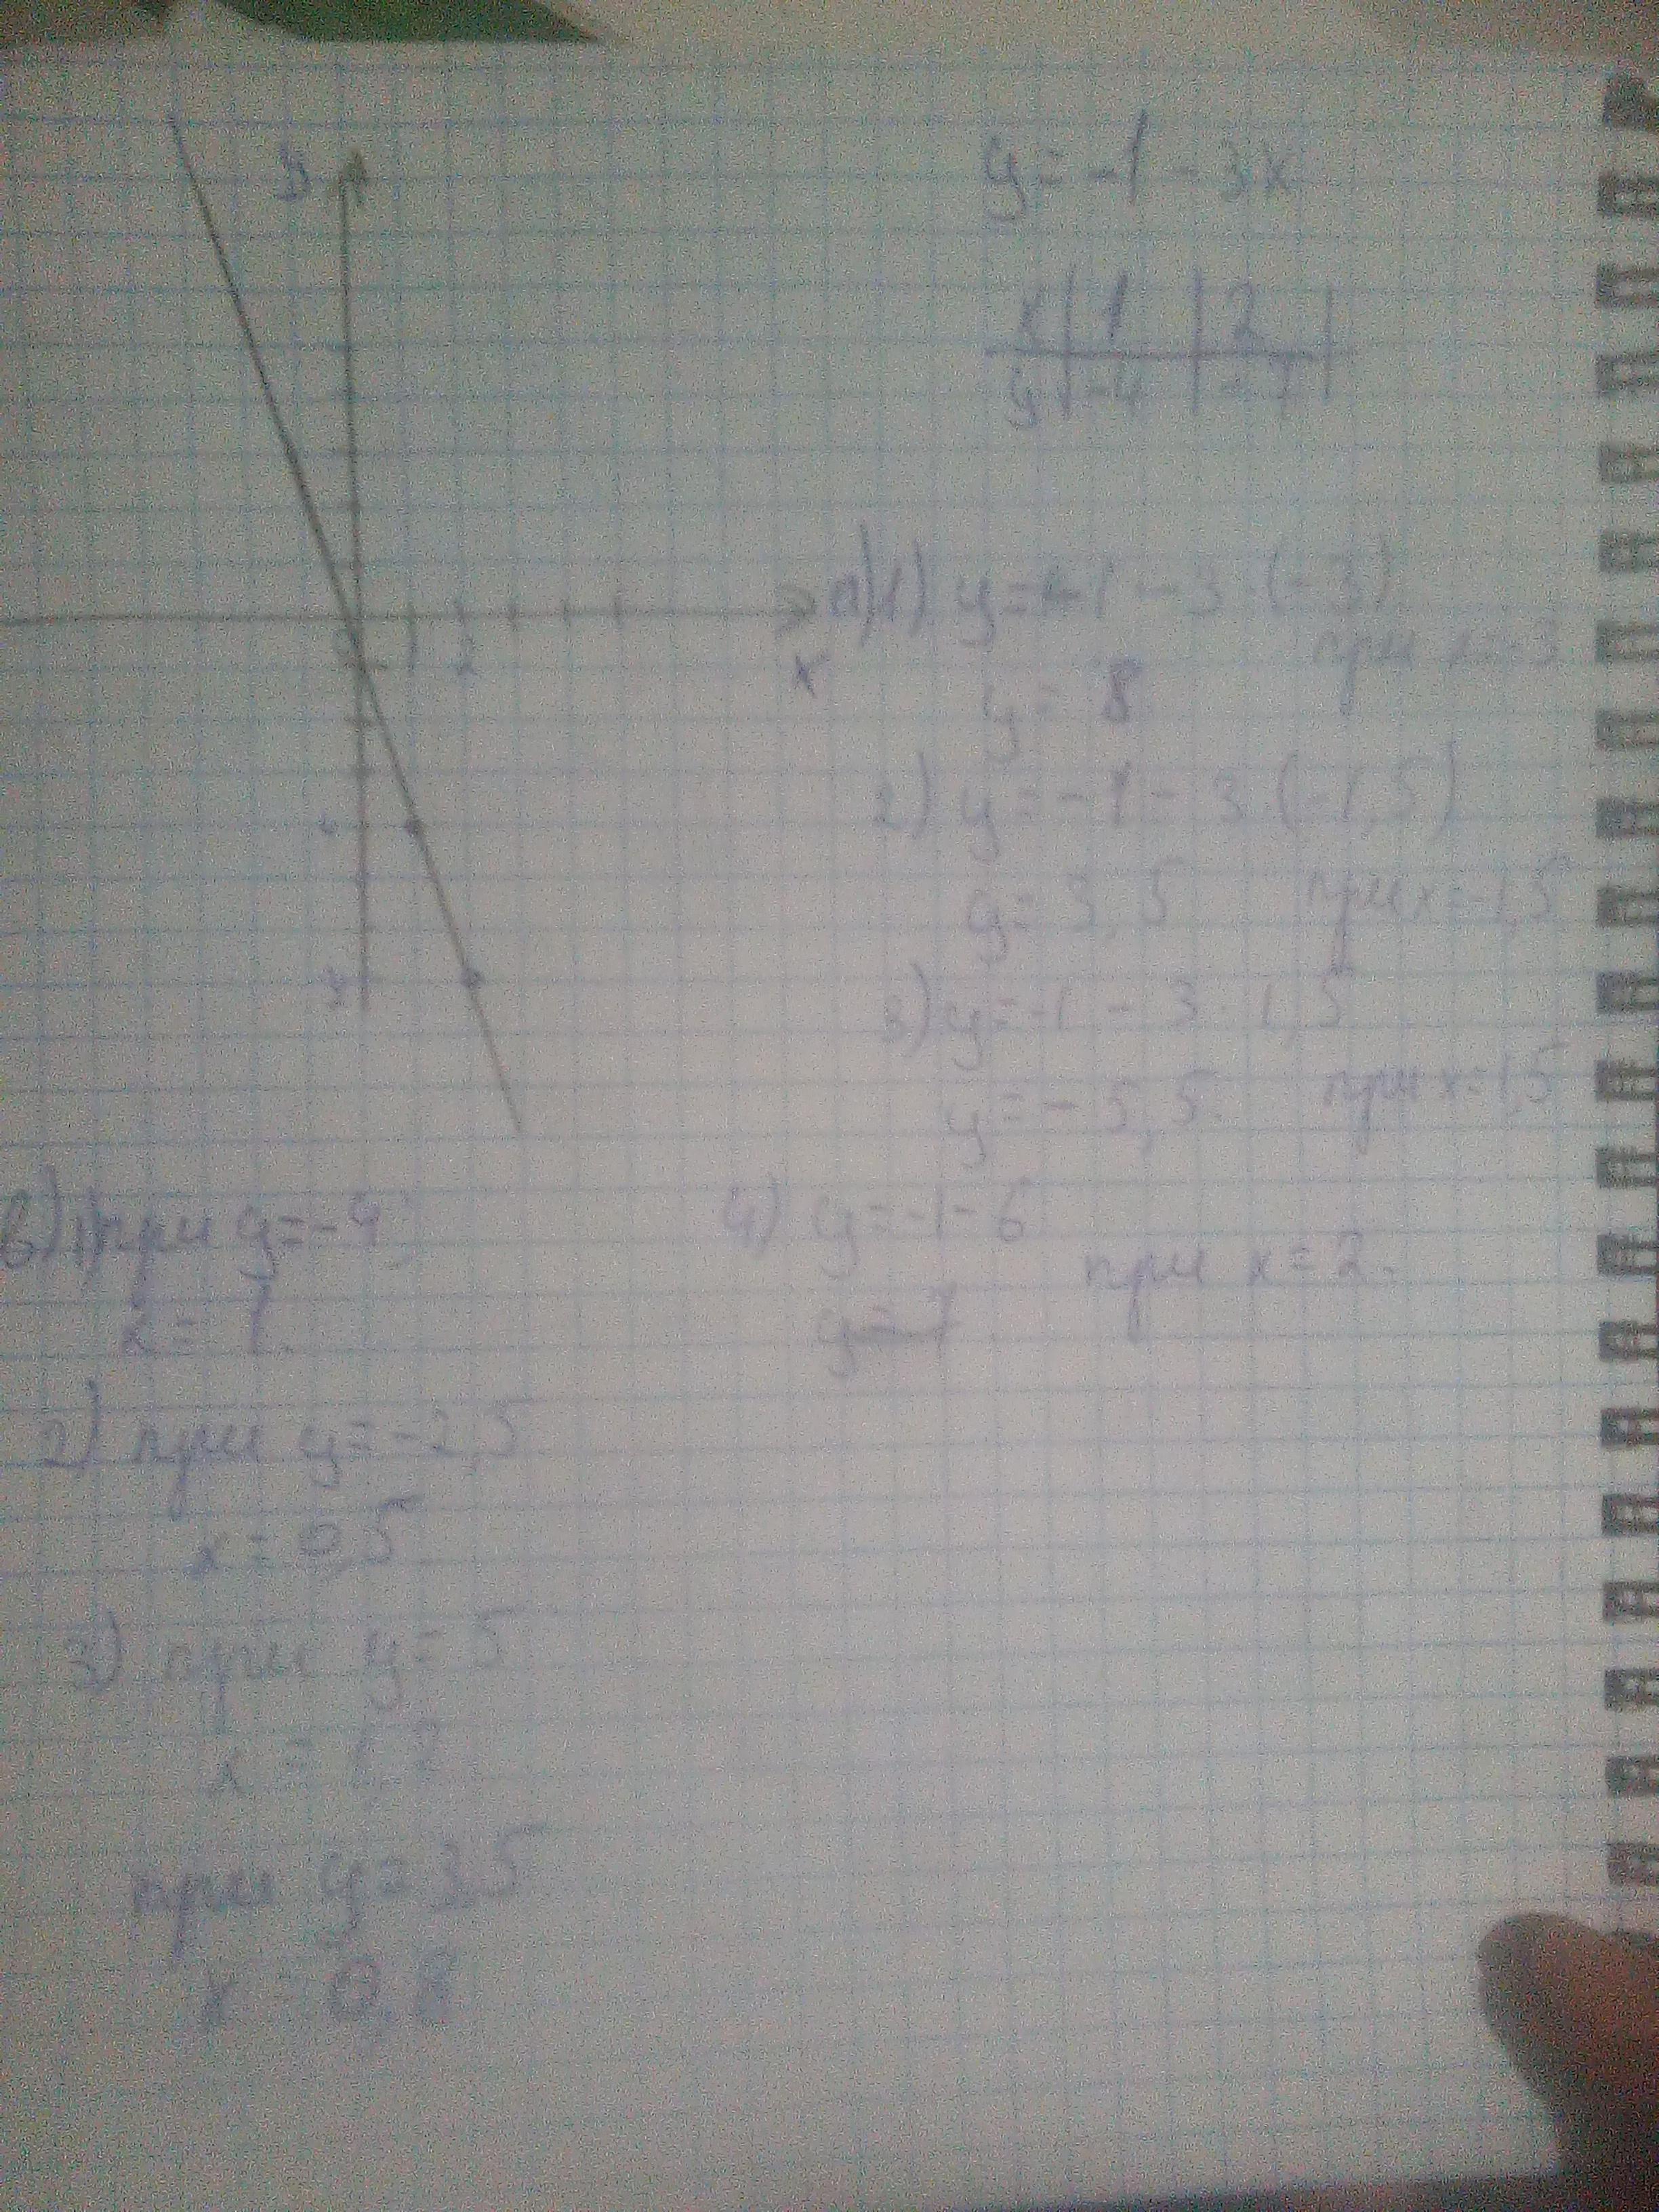 y = -1 - 3x
x | 1 | 2
y | -4 | -7
y
0 1 2
x
а) 1) y = -1 - 3 · (-3)
при x = -3
y = 8
2) y = -1 - 3 · (-1,5)
y = 3,5 при x = -1,5
3) y = -1 - 3 · 1,5
y = -5,5 при x = 1,5
4) y = -1 - 6
при x = 2.
y = -7
в) 1) при y = -4
x = 1.
2) при y = -2,5
x = 0,5
3) при y = 5
x = 1,2
при y = 3,5
x = 0,8